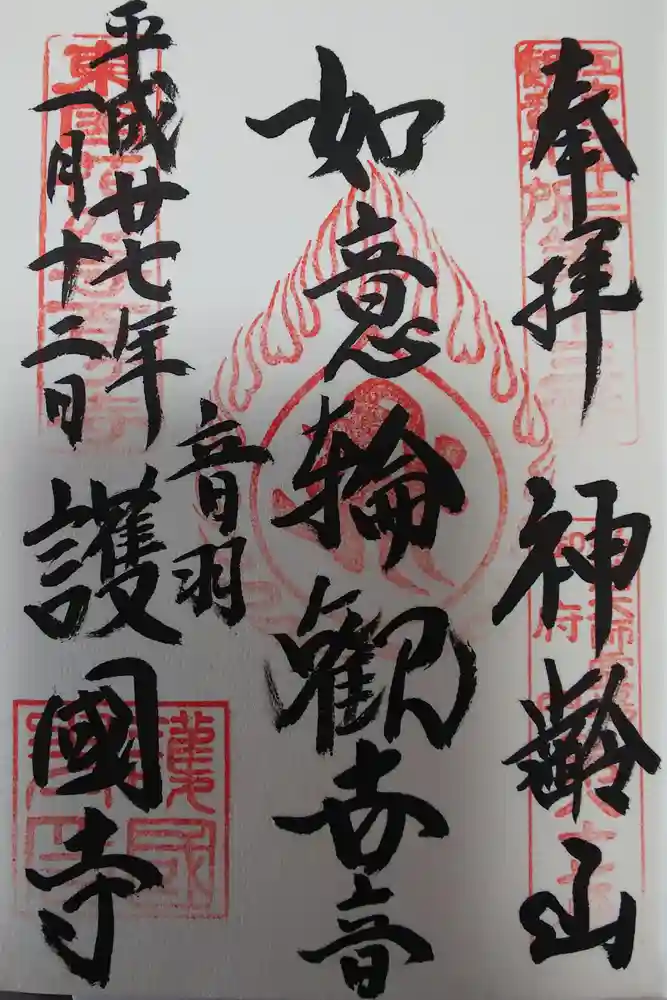 奉拝
神齢山
如意輪観世音
音羽
護國寺
平成廿七年
一月十二日